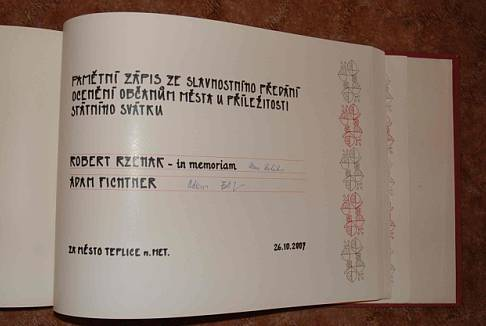 PAMĚTNÍ ZÁPIS ZE SLAVNOSTNÍHO PŘEDÁNÍ
OCENĚNÍ OBČANŮM MĚSTA U PŘÍLEŽITOSTI
STÁTNÍHO SVÁTKU
ROBERT RZEHAK - in memoriam
ADAM FICHTNER
ZA MĚSTO TEPLICE n. MET.
26.10.2007